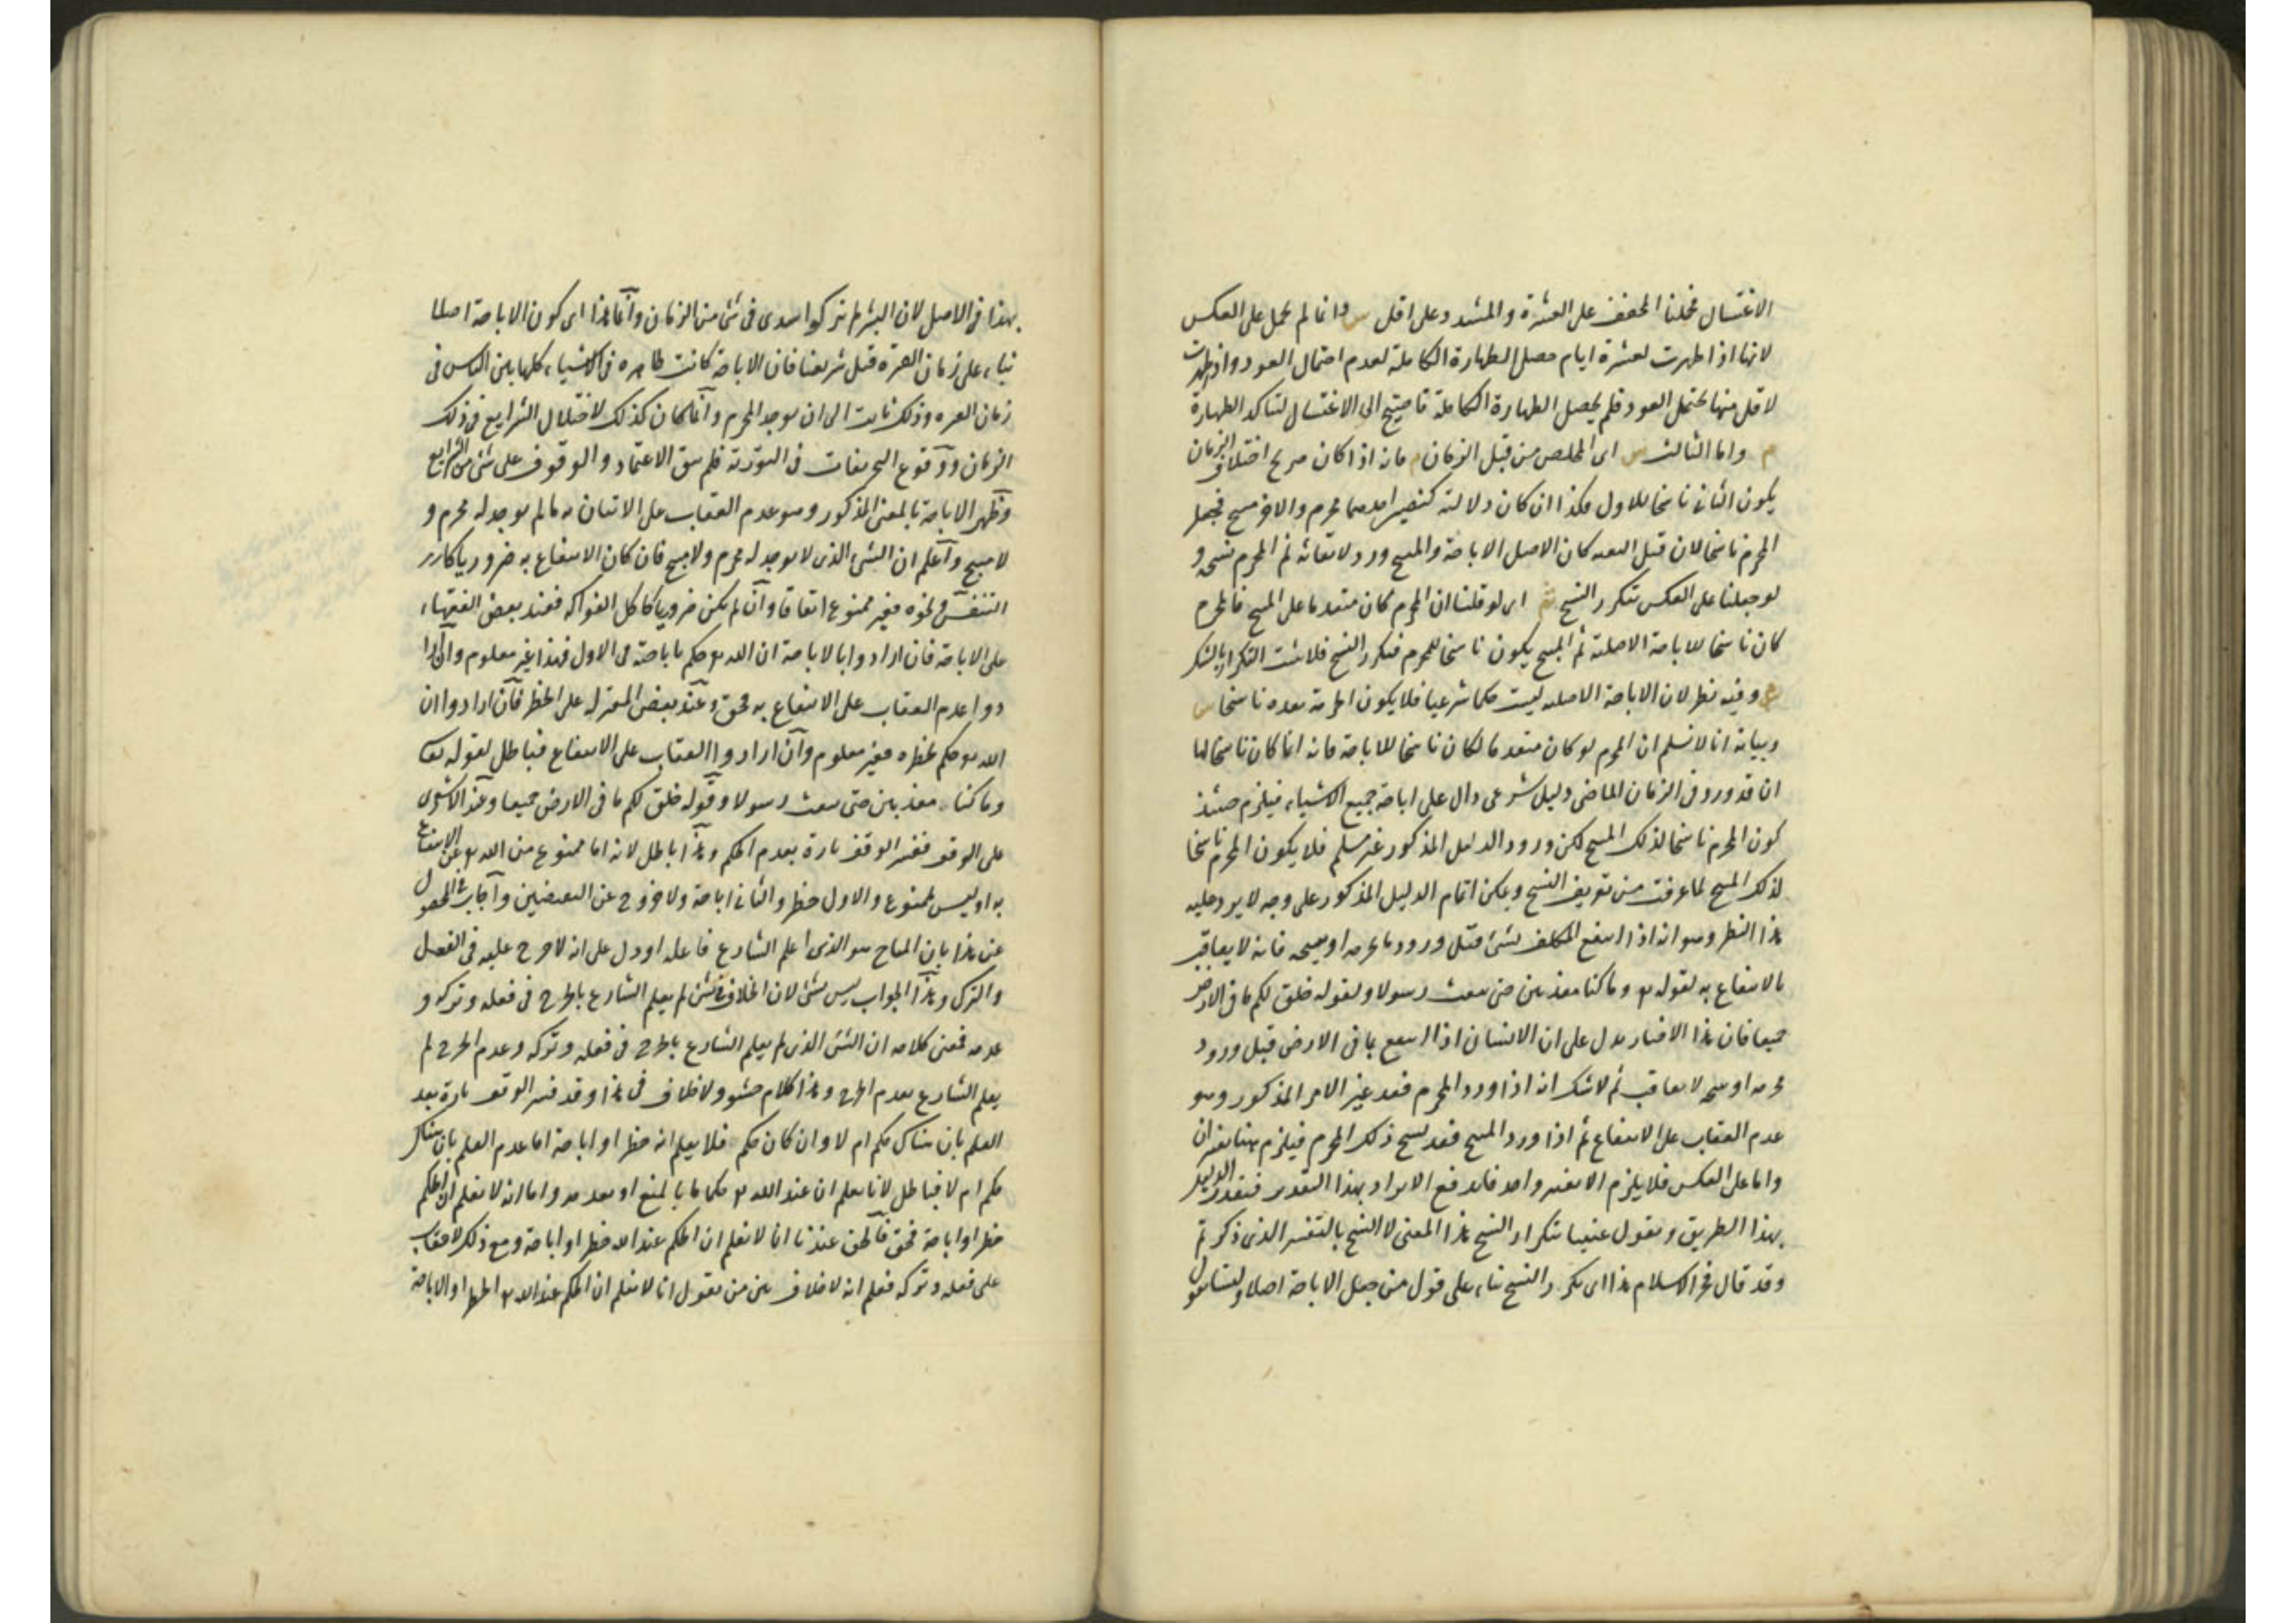 الاغتسال فحملنا المخفف على العشرة والمشدد على اقل س وانما لم يحمل على العكس
لانها اذا طهرت لعشرة ايام حصل الطهارة الكاملة لعدم احتمال العود واذا طهرت
لاقل منها يحتمل العود فلم يحصل الطهارة الكاملة فاحتيج الى الاغتسال لتتاكد الطهارة
م واما الثالث س اى المخلص من قبل الزمان م فانه اذا كان صريح اختلاف الزمان
يكون الثانى ناسخا للاول فكذا ان كان دلالته كنصين احدهما محرم والاخر مبيح فيجعل
المحرم ناسخا لان قبل البعثه كان الاصل الاباحة والمبيح ورد لابقائه ثم المحرم نسخه و
لو جعلنا على العكس يتكرر النسخ ش اى لو قلنا ان المحرم كان متقدما على المبيح فالمحرم
كان ناسخا للاباحة الاصلية ثم المبيح يكون ناسخا للمحرم فتكرر النسخ فلا يثبت التكرار بالشك
م وفيه نظر لان الاباحة الاصليه ليست حكما شرعيا فلا يكون الحرمة بعده ناسخا س
وبيانه انا لا نسلم ان المحرم لو كان متقدما لكان ناسخا للاباحة فانه انما كان ناسخا لها
ان قد ورد فى الزمان الماضى دليل شرعى دال على اباحة جميع الاشياء فيلزم حينئذ
كون المحرم ناسخا لذلك المبيح لكن ورود الدليل المذكور غير مسلم فلا يكون المحرم ناسخا
لذلك المبيح لما عرفت من تعريف النسخ ويمكن اتمام الدليل المذكور على وجه لا يرد عليه
هذا النظر وهو انه اذا انتفع المكلف بشئ قبل ورود ما يحرمه او يبيحه فانه لا يعاقب
بالانتفاع به لقوله تع وما كنا معذبين حتى نبعث رسولا ولقوله خلق لكم ما فى الارض
جميعا فان هذا الاخبار يدل على ان الانسان اذا انتفع بما فى الارض قبل ورود
محرمه او مبيحه لا يعاقب ثم لا شك انه اذا ورد المحرم فقد غير الامر المذكور وهو
عدم العقاب على الانتفاع ثم اذا ورد المبيح فقد نسخ ذلك المحرم فيلزم هنا تغيران
واما على العكس فلا يلزم الا تغير واحد فاندفع الايراد بهذا التقدير فنقرر الدليل
بهذا الطريق ونقول عنينا بتكرار النسخ هذا المعنى لا النسخ بالتفسير الذى ذكرتم
وقد قال فخر الاسلام هذا اى تكرر النسخ بناء على قول من جعل الاباحة اصلا ولسنا نقول
بهذا فى الاصل لان البشر لم يتركوا سدى فى شئ من الزمان وانما هذا اى كون الاباحة اصلا
بناء على زمان الفترة قبل شريعتنا فان الاباحة كانت ظاهره فى الاشياء كلها بين الناس فى
زمان الفتره وذلك ثابت الى ان يوجد المحرم وانما كان كذلك لاختلال الشرايع فى ذلك
الزمان ووقوع التحريفات فى التوراة فلم يبق الاعتماد والوقوف على شئ من الشرايع
وظهر الاباحة بالمعنى المذكور وهو عدم العقاب على الاتيان به ما لم يوجد له محرم و
لا مبيح واعلم ان الشئ الذى لا يوجد له محرم ولا مبيح فان كان الانتفاع به ضروريا كا
لتنفس ونحوه فغير ممنوع اتفاقا وان لم يكن ضروريا كاكل الفواكه فعند بعض الفقهاء
على الاباحة فان ارادوا بالاباحة ان الله تع حكم باباحته فى الازل فهذا غير معلوم وان ارا
دوا عدم العقاب على الانتفاع به فحق وعند بعض المعتزله على الحظر فان ارادوا ان
الله تع حكم بحظره فغير معلوم وان ارادوا العقاب على الانتفاع فباطل لقوله تع
وما كنا معذبين حتى نبعث رسولا وقوله خلق لكم ما فى الارض جميعا وعند الاشعرى
على الوقف ففسر الوقف تارة بعدم الحكم وهذا باطل لانه اما ممنوع من الله تع عن الانتفاع
به او ليس بممنوع والاول حظر والثانى اباحة ولا خروج عن النقيضين واجاب فى المحصول
عن هذا بان المباح هو الذى اعلم الشارع فاعله او دل على انه لا حرج عليه فى الفعل
والترك وهذا الجواب ليس بشئ لان الخلاف فى شئ لم يعلم الشارع بالحرج فى فعله وتركه و
عدمه فمعنى كلامه ان الشئ الذى لم يعلم الشارع بالحرج فى فعله وتركه وعدم الحرج لم
يعلم الشارع بعدم الحرج وهذا كلام حشو ولا خلاف فى هذا وقد فسر الوقف تارة بعد
العلم بان هناك حكم ام لا وان كان حكم فلا يعلم انه حظر او اباحة اما عدم العلم بان هناك
حكم ام لا فباطل لانا نعلم ان عند الله تع حكما ما بالمنع او بعدمه واما انه لا نعلم ان الحكم
حظر او اباحة فحق فالحق عندنا انا لا نعلم ان الحكم عند الله حظر او اباحة ومع ذلك لا عقاب
على فعله وتركه فعلم انه لا خلاف بين من يقول انا لا نعلم ان الحكم عند الله تع الحظر او الاباحة